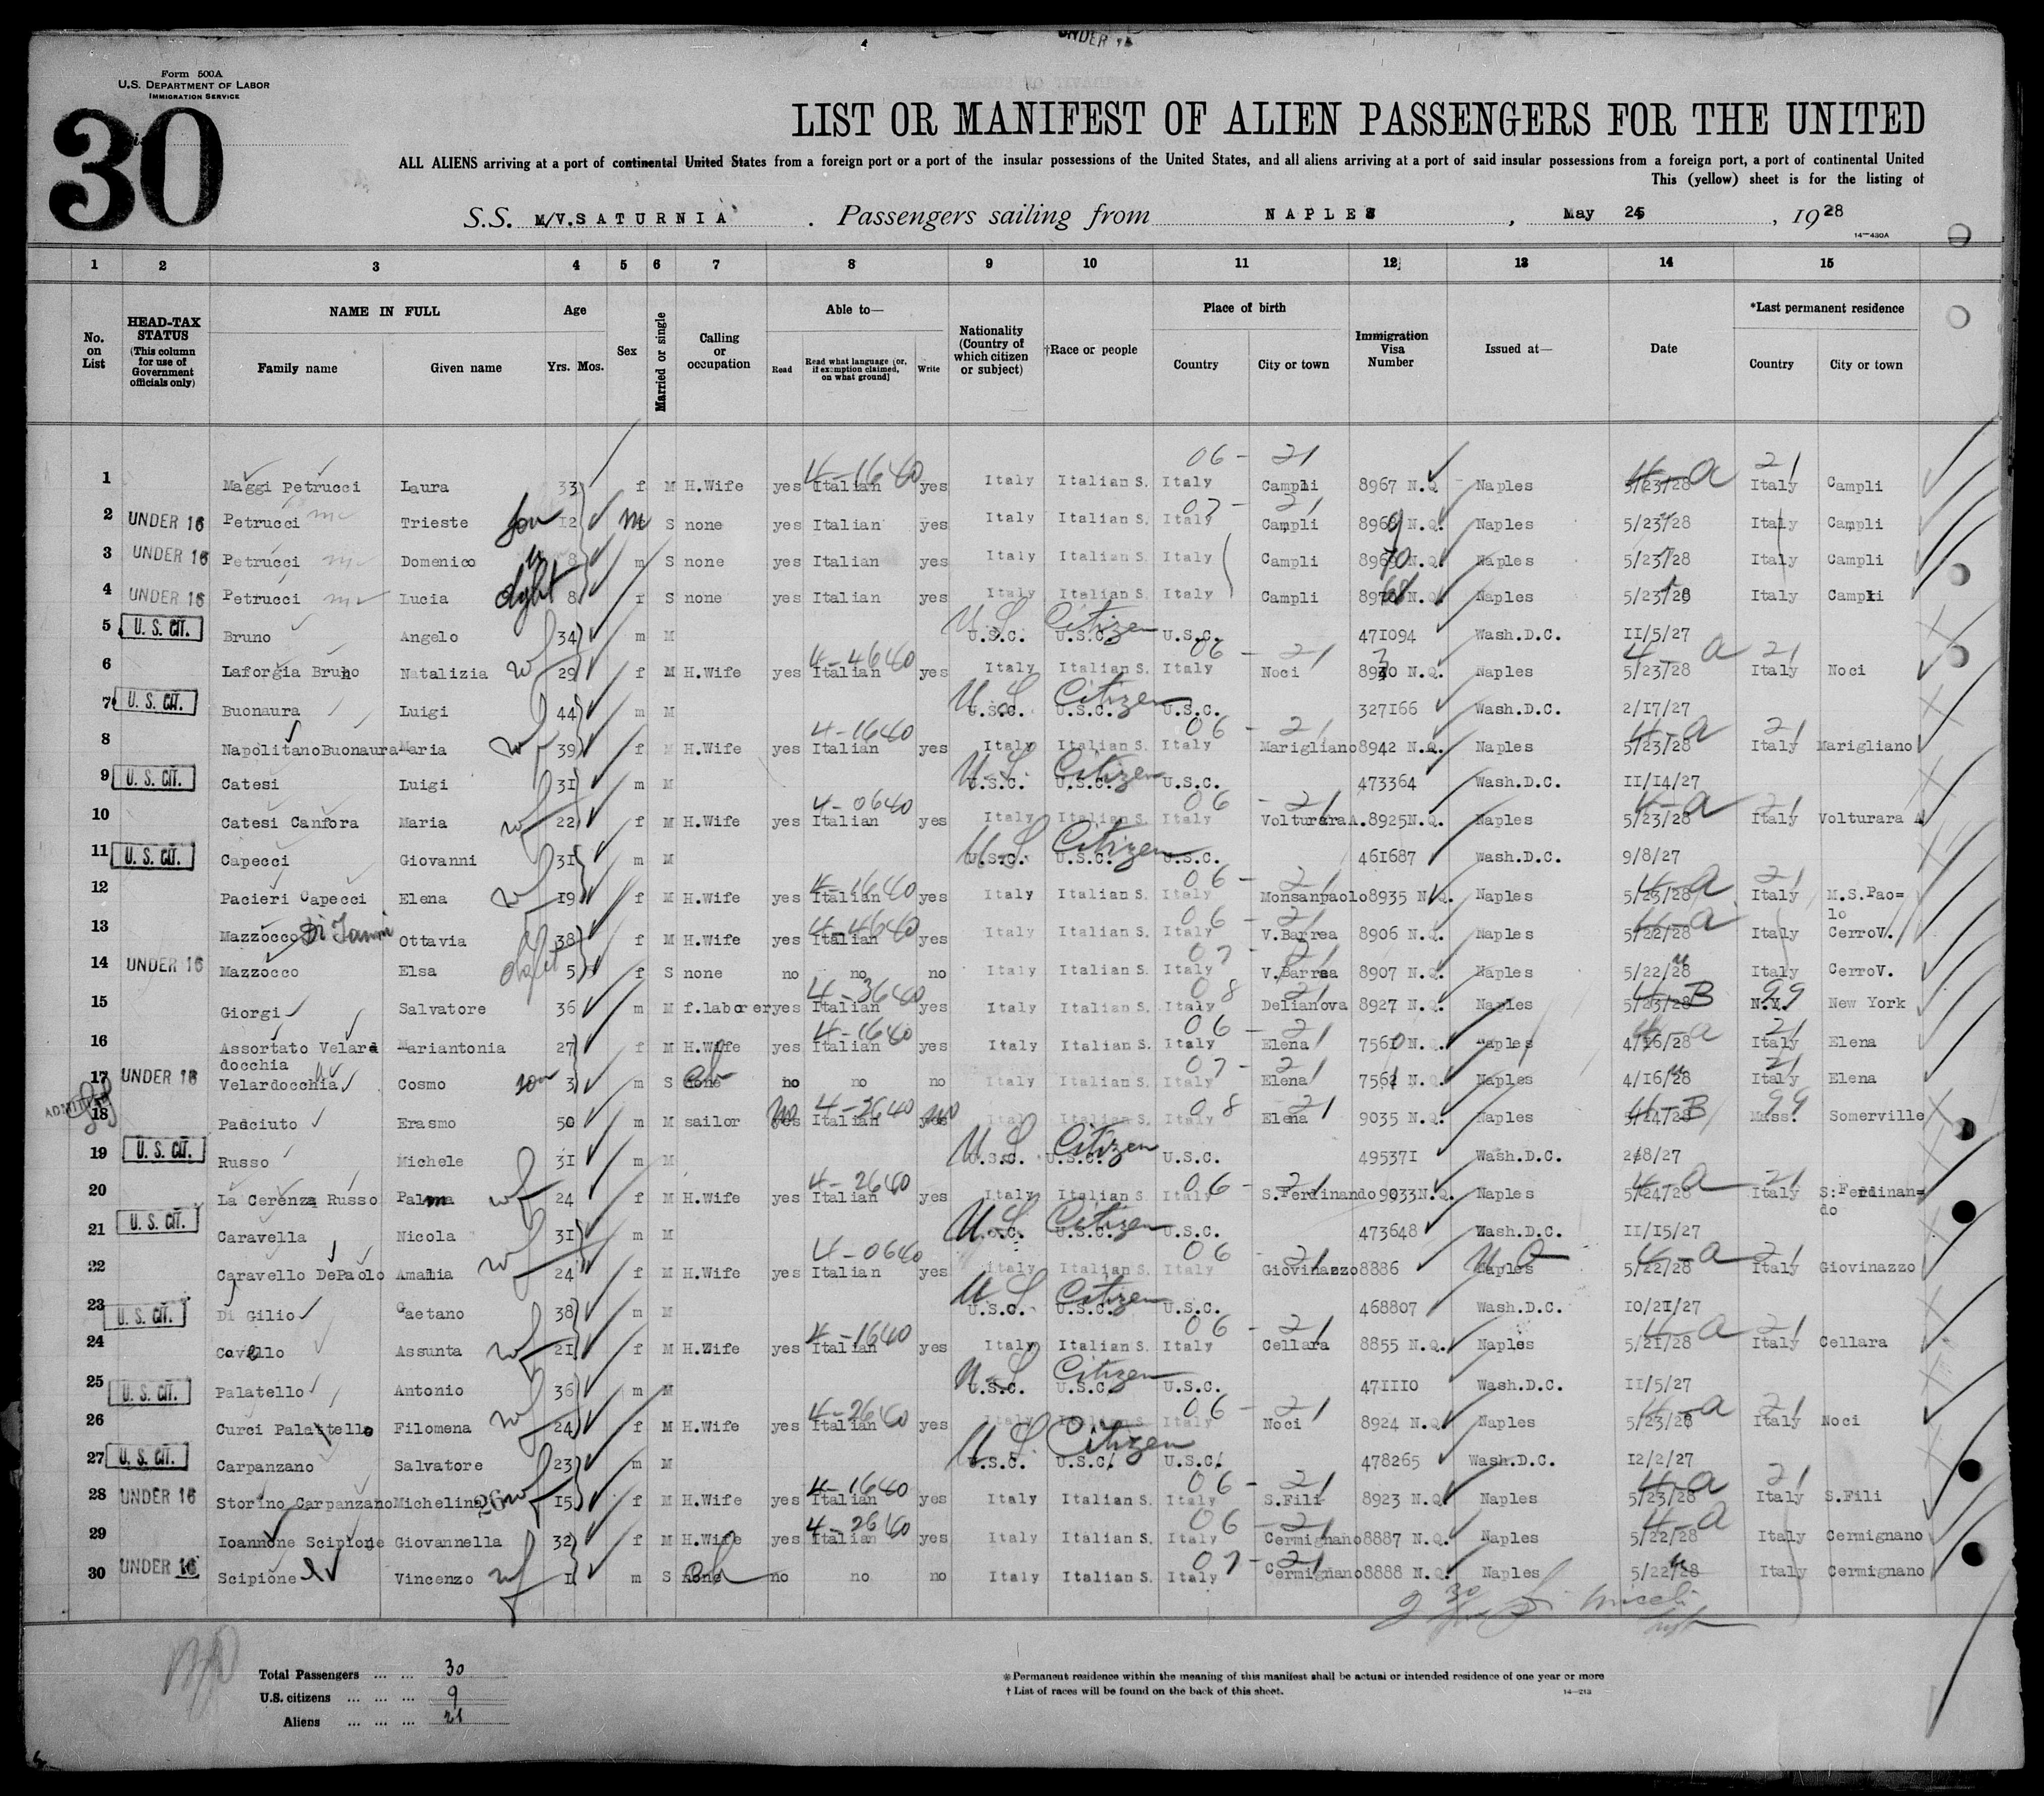 UNDER 16
Form 500A
U.S. DEPARTMENT OF LABOR
IMMIGRATION SERVICE
30
LIST OR MANIFEST OF ALIEN PASSENGERS FOR THE UNITED
ALL ALIENS arriving at a port of continental United States from a foreign port or a port of the insular possessions of the United States, and all aliens arriving at a port of said insular possessions from a foreign port, a port of continental United
This (yellow) sheet is for the listing of
S.S. M/V.SATURNIA . Passengers sailing from NAPLES , May 25 , 1928
14—430A
1 2 3 4 5 6 7 8 9 10 11 12 13 14 15
No. on List
HEAD-TAX STATUS (This column for use of Government officials only)
NAME IN FULL Family name Given name
Age Yrs. Mos.
Sex
Married or single
Calling or occupation
Able to— Read Read what language [or, if exemption claimed, on what ground] Write
Nationality (Country of which citizen or subject)
†Race or people
Place of birth Country City or town
Immigration Visa Number
Issued at—
Date
*Last permanent residence Country City or town
06 - 21
1 Maggi Petrucci Laura 33 f M H.Wife yes Italian 4-1640 yes Italy Italian S. Italy Campli 8967 N.Q. Naples 5/23/28 4-a 21 Italy Campli
07 - 21
2 UNDER 16 Petrucci Trieste son 12 m S none yes Italian yes Italy Italian S. Italy Campli 8969 N.Q. Naples 5/23/28 Italy Campli
3 UNDER 16 Petrucci Domenico 8 m S none yes Italian yes Italy Italian S. Italy Campli 8970 N.Q. Naples 5/23/28 Italy Campli
4 UNDER 16 Petrucci Lucia dght 8 f S none yes Italian yes Italy Italian S. Italy Campli 8968 N.Q. Naples 5/23/28 Italy Campli
5 U. S. CIT. Bruno Angelo 34 m M U.S.C. U.S.C. U.S.C. U S Citizen 471094 Wash.D.C. 11/5/27
6 Laforgia Bruno Natalizia wf 29 f M H.Wife yes Italian 4-4640 yes Italy Italian S. Italy 06 - 21 Noci 8930 N.Q. Naples 5/23/28 4-a 21 Italy Noci
7 U. S. CIT. Buonaura Luigi 44 m M U.S.C. U.S.C. U.S.C. U S Citizen 327166 Wash.D.C. 2/17/27
8 NapolitanoBuonaura Maria wf 39 f M H.Wife yes Italian 4-1640 yes Italy Italian S. Italy 06 - 21 Marigliano 8942 N.Q. Naples 5/23/28 4-a 21 Italy Marigliano
9 U. S. CIT. Catesi Luigi 31 m M U.S.C. U.S.C. U.S.C. U S Citizen 473364 Wash.D.C. 11/14/27
10 Catesi Canfora Maria wf 22 f M H.Wife yes Italian 4-0640 yes Italy Italian S. Italy 06 - 21 Volturara A. 8925 N.Q. Naples 5/23/28 4-a 21 Italy Volturara A
11 U. S. CIT. Capecci Giovanni 31 m M U.S.C. U.S.C. U.S.C. U S Citizen 461687 Wash.D.C. 9/8/27
12 Pacieri Capecci Elena wf 19 f M H.Wife yes Italian 4-1640 yes Italy Italian S. Italy 06 - 21 Monsanpaolo 8935 N.Q. Naples 5/23/28 4-a 21 Italy M.S.Pao=
lo
13 Mazzocco Di Ianni Ottavia 38 f M H.Wife yes Italian 4-4640 yes Italy Italian S. Italy 06 - 21 V.Barrea 8906 N.Q. Naples 5/22/28 4-a Italy CerroV.
14 UNDER 16 Mazzocco Elsa dght 5 f S none no no no Italy Italian S. Italy 07 - 21 V.Barrea 8907 N.Q. Naples 5/22/28 Italy CerroV.
15 Giorgi Salvatore 36 m M f.laborer yes Italian 4-3640 yes Italy Italian S. Italy 08 21 Delianova 8927 N.Q. Naples 5/23/28 4-B 99 N.Y. New York
16 Assortato Velard Mariantonia 27 f M H.Wife yes Italian 4-1640 yes Italy Italian S. Italy 06 - 21 Elena 7560 N.Q. Naples 4/16/28 4-a 21 Italy Elena
docchia
17 UNDER 16 Velardocchia Cosmo son 3 m S none ch no no no Italy Italian S. Italy 07 - 21 Elena 7561 N.Q. Naples 4/16/28 21 Italy Elena
ADMITTED
18 Pasciuto Erasmo 50 m M sailor yes no Italian 4-2640 yes no Italy Italian S. Italy 08 21 Elena 9035 N.Q. Naples 5/24/28 4-B 99 Mass. Somerville
19 U. S. CIT. Russo Michele 31 m M U.S.C. U.S.C. U.S.C. U S Citizen 495371 Wash.D.C. 2/8/27
20 La Cerenza Russo Palma wf 24 f M H.Wife yes Italian 4-2640 yes Italy Italian S. Italy 06 - 21 S.Ferdinando 9033 N.Q. Naples 5/24/28 4-a 21 Italy S:Ferdinan=
do
21 U. S. CIT. Caravella Nicola 31 m M U.S.C. U.S.C. U.S.C. U S Citizen 473648 Wash.D.C. 11/15/27
22 Caravello DePaolo Amalia wf 24 f M H.Wife yes Italian 4-0640 yes Italy Italian S. Italy 06 - 21 Giovinazzo 8886 Naples N Q 5/22/28 4-a 21 Italy Giovinazzo
23 U. S. CIT. Di Gilio Gaetano 38 m M U.S.C. U.S.C. U.S.C. U S Citizen 468807 Wash.D.C. 10/21/27
24 Covello Assunta wf 21 f M H.Wife yes Italian 4-1640 yes Italy Italian S. Italy 06 - 21 Cellara 8855 N.Q. Naples 5/21/28 4-a 21 Italy Cellara
25 U. S. CIT. Palatello Antonio 36 m M U.S.C. U.S.C. U.S.C. U S Citizen 471110 Wash.D.C. 11/5/27
26 Curci Palattello Filomena wf 24 f M H.Wife yes Italian 4-2640 yes Italy Italian S. Italy 06 - 21 Noci 8924 N.Q. Naples 5/23/28 4-a 21 Italy Noci
27 U. S. CIT. Carpanzano Salvatore 23 m M U.S.C. U.S.C. U.S.C. U S Citizen 478265 Wash.D.C. 12/2/27
28 UNDER 16 Storino Carpanzano Michelina 26 wf 15 f M H.Wife yes Italian 4-1640 yes Italy Italian S. Italy 06 - 21 S.Fili 8923 N.Q. Naples 5/23/28 4-a 21 Italy S.Fili
29 Ioannone Scipione Giovannella 32 f M H.Wife yes Italian 4-2640 yes Italy Italian S. Italy 06 - 21 Cermignano 8887 N.Q. Naples 5/22/28 4-a Italy Cermignano
30 UNDER 16 Scipione Vincenzo 1 m S none ch no no no Italy Italian S. Italy 07 - 21 Cermignano 8888 N.Q. Naples 5/22/28 Italy Cermignano
Total Passengers ... ... 30
U.S. citizens ... ... ... 9
Aliens ... ... ... 21
* Permanent residence within the meaning of this manifest shall be actual or intended residence of one year or more
† List of races will be found on the back of this sheet.
14—213